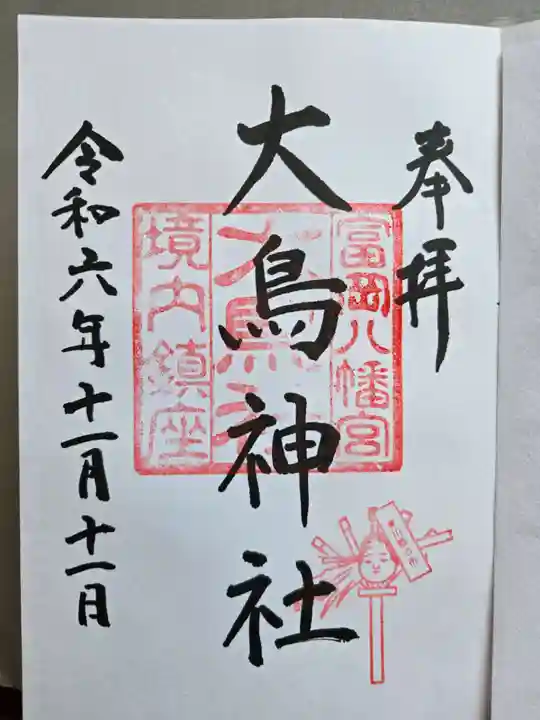 奉拝
大鳥神社
令和六年十一月十一日
富岡八幡宮
境内鎮座